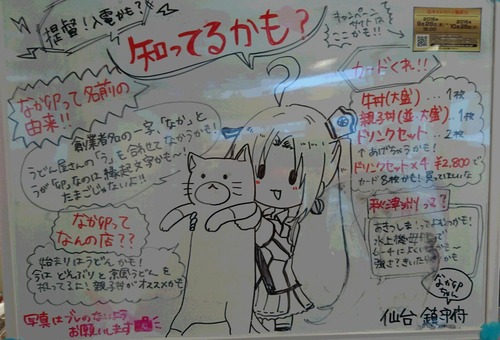 提督!入電かも?
知ってるかも?
キャンペーン
サイトは
ここかも!!
なか卯って名前の
由来!!
創業者名の一字、「なか」と
うどん屋さんの「う」を合せてなかうかも!
うが「卯」なのは縁起文字かも〜!
たまごじゃないよ!!
なか卯って
なんの店??
始まりはうどんかも!
今はどんぶりと京風うどんを
扱ってるよ!親子丼がオススメかも
写真はブレのないよう
お願いします
カードくれ!!
牛丼(大盛)…1枚
親子丼(並・大盛)…1枚
ドリンクセット…2枚
をあげちゃうかも!
ドリンクセット×4 ¥2,800で
カード8枚かも!買ってほしいな
秋津洲って?
あきつしま!ってよむかも!
かも〜
かも
なか卯
仙台 鎮守府